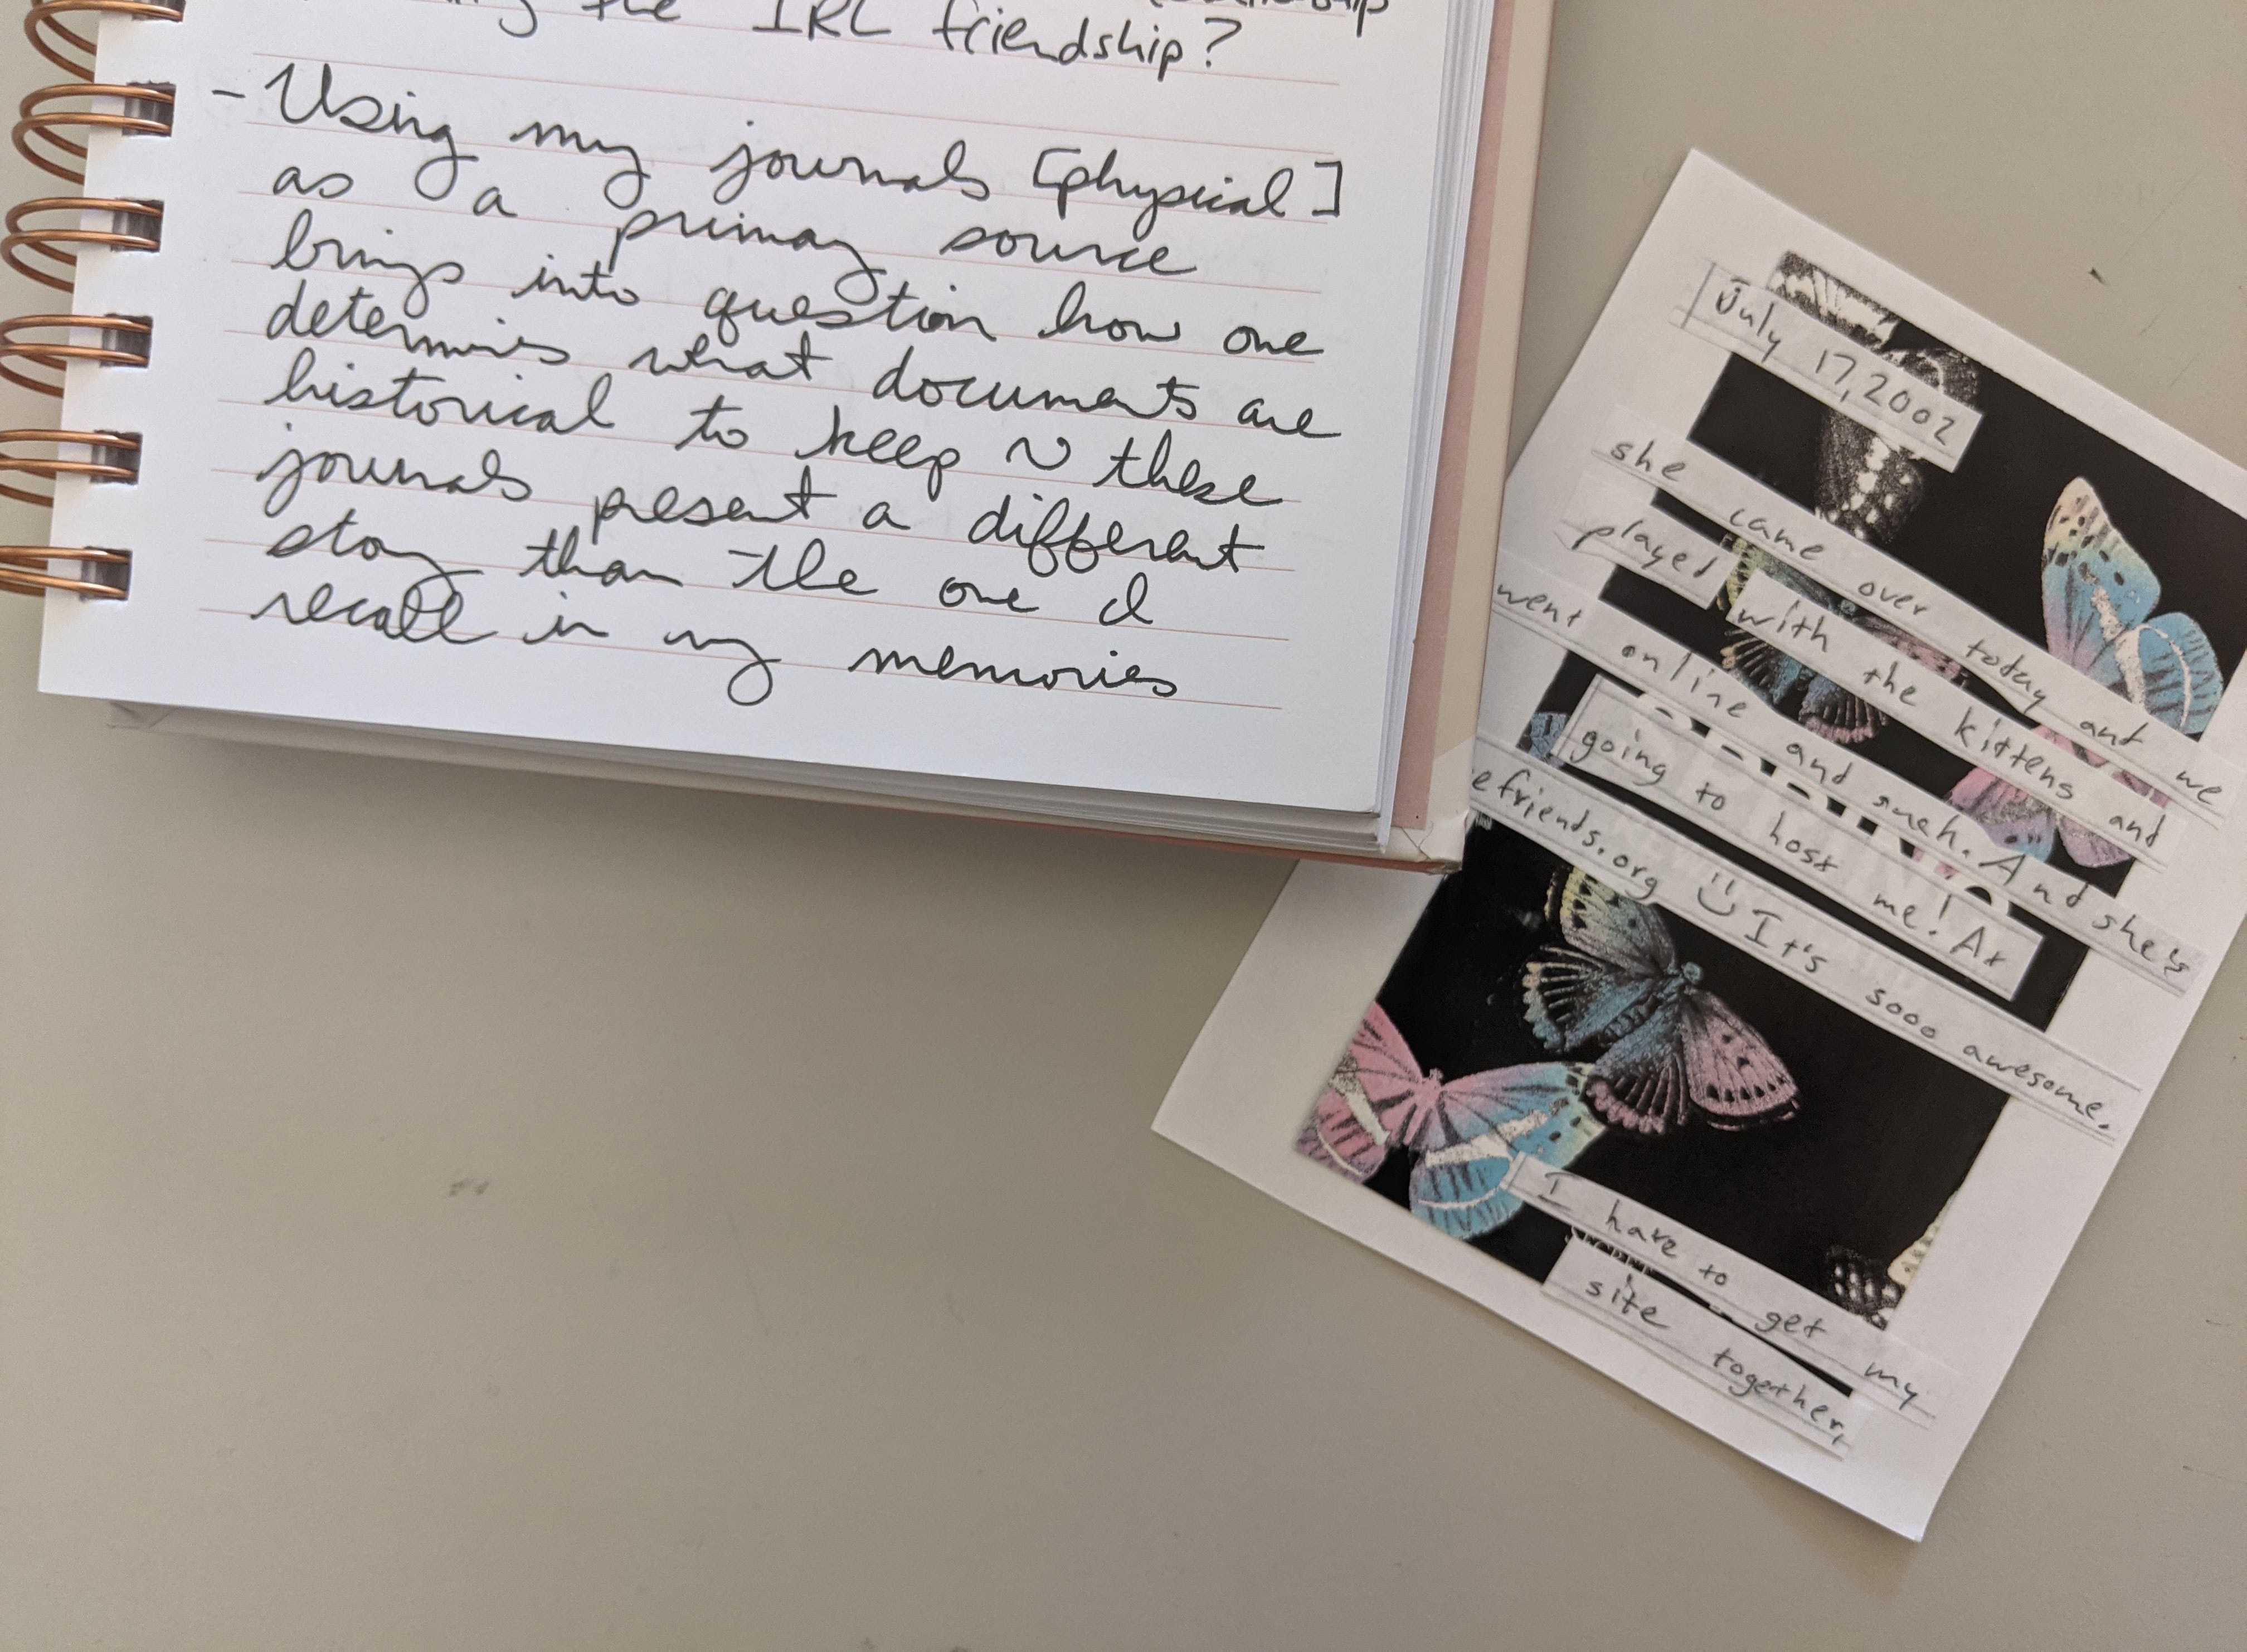 the IRL friendship?
- Using my journals [physical]
as a primary source
brings into question how one
determines what documents are
historical to keep ~ these
journals present a different
story than the one I
recall in my memories
July 17, 2002
she came over today and we
played with the kittens and
went online and such. And she's
going to host me! At
efriends.org :) It's sooo awesome.
I have to get my
site together,